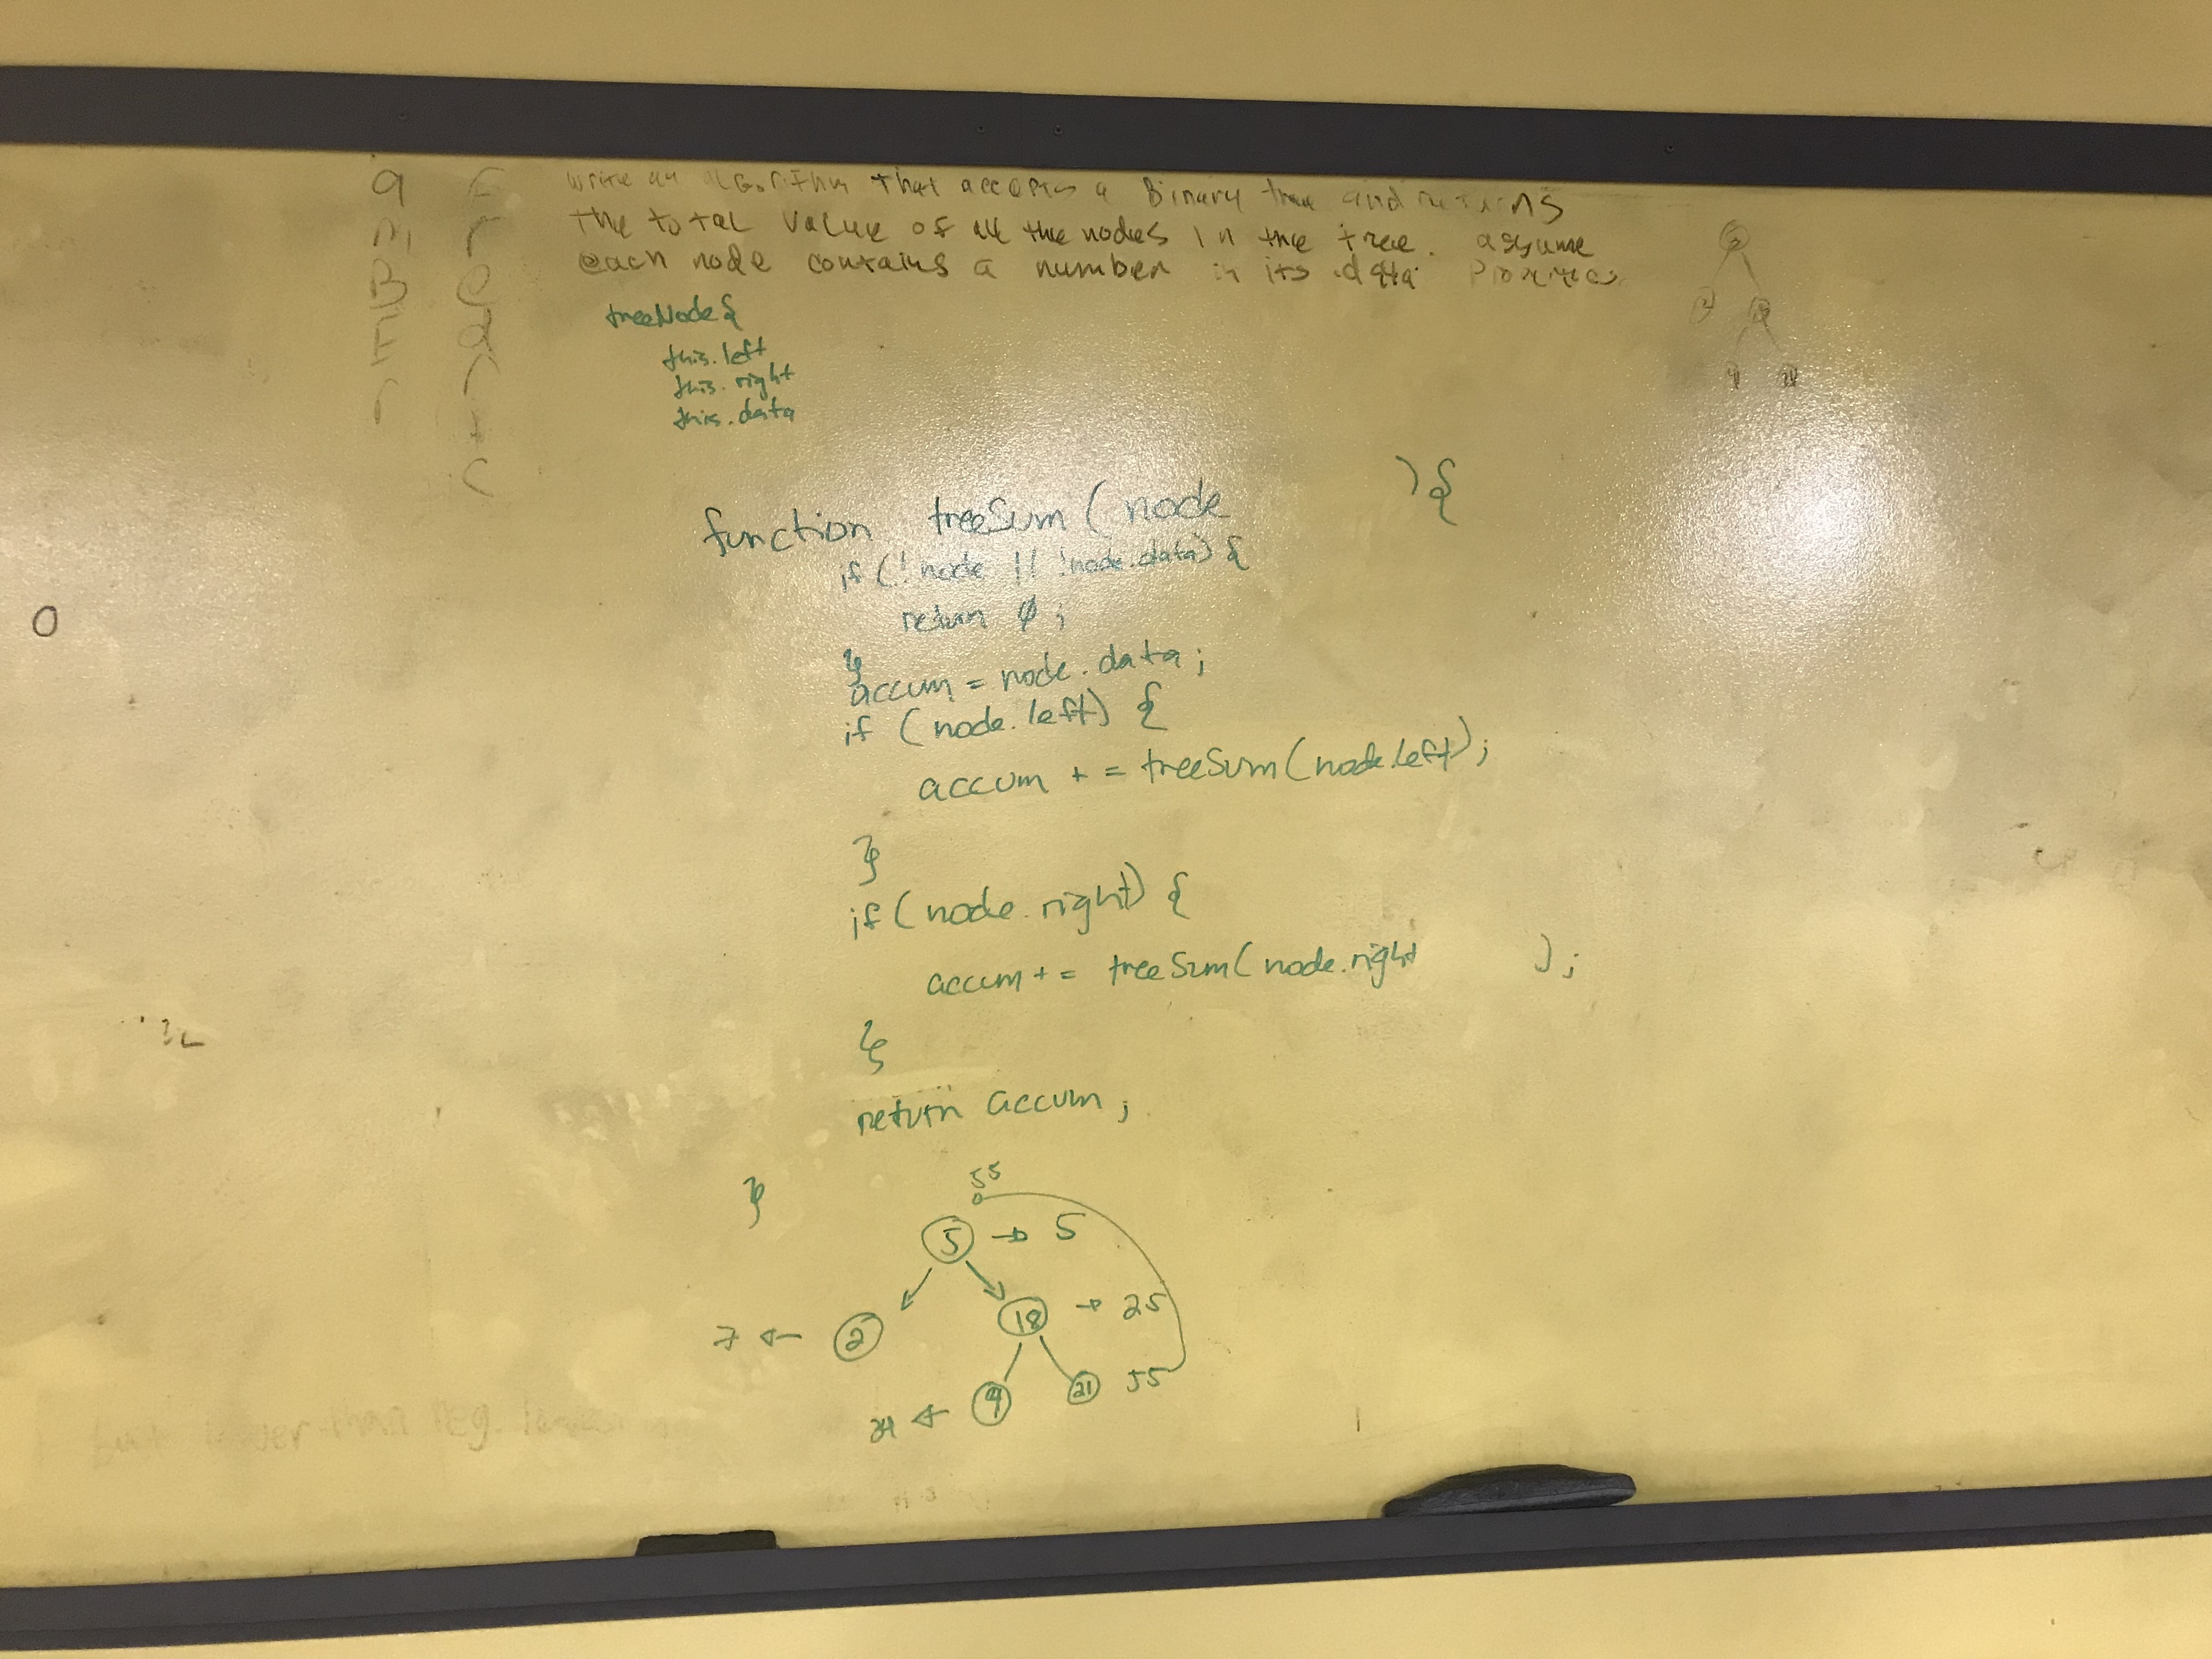 write an algorithm that accepts a Binary tree and returns
the total value of all the nodes in the tree. assume
each node contains a number in its data
treeNode {
this.left
this.right
this.data
function treeSum ( node ) {
if ( ! node || !node.data) {
return 0 ;
}
accum = node.data ;
if (node.left) {
accum + = treeSum (node.left);
}
if (node.right) {
accum + = treeSum (node.right );
}
return accum ;
}
55
5 → 5
7 ← 2 18 → 25
9 21 55
0
but than reg.